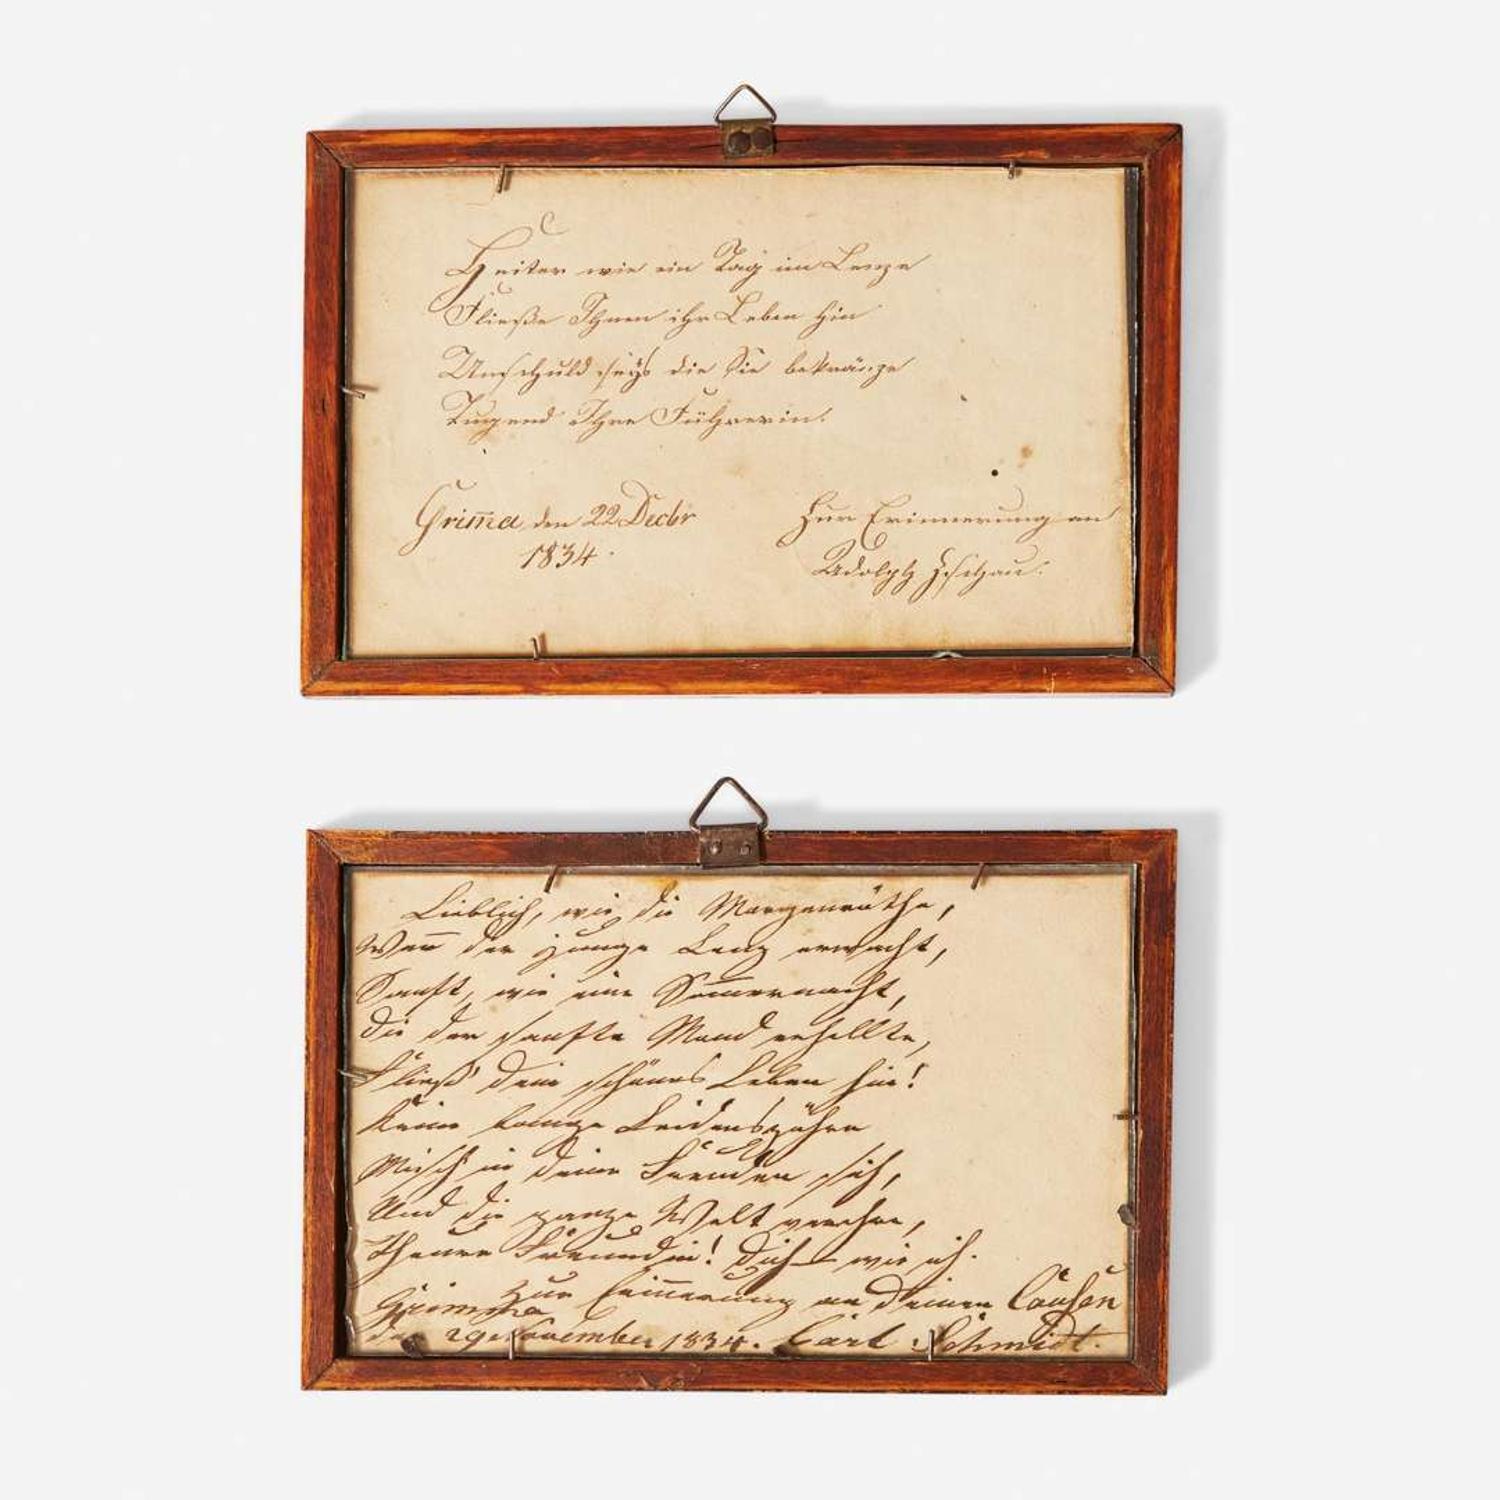 Heiter wie ein Tag im Lenze
Fließe Ihnen ihr Leben hin
Unschuld seys die Sie bekränze
Tugend Ihre Führerin.
Grim̅a den 22 Decbr
1834.
Zur Erinnerung an
Adolph Zschau.
Lieblich, wie die Morgenröthe,
Wen̅ der junge Lenz erwacht,
Sanft, wie eine Som̅ernacht,
Die der sanfte Mond erhellte,
Fließ' dein schönes Leben hin!
Keine bange Leidenszähre
Misch' in deine Freuden sich,
Und die ganze Welt verehre,
Theure Freundin! Dich – wie ich.
Zur Erin̅erung an deinen Cousen
Grimma
den 29 November 1834. Carl Schmidt.